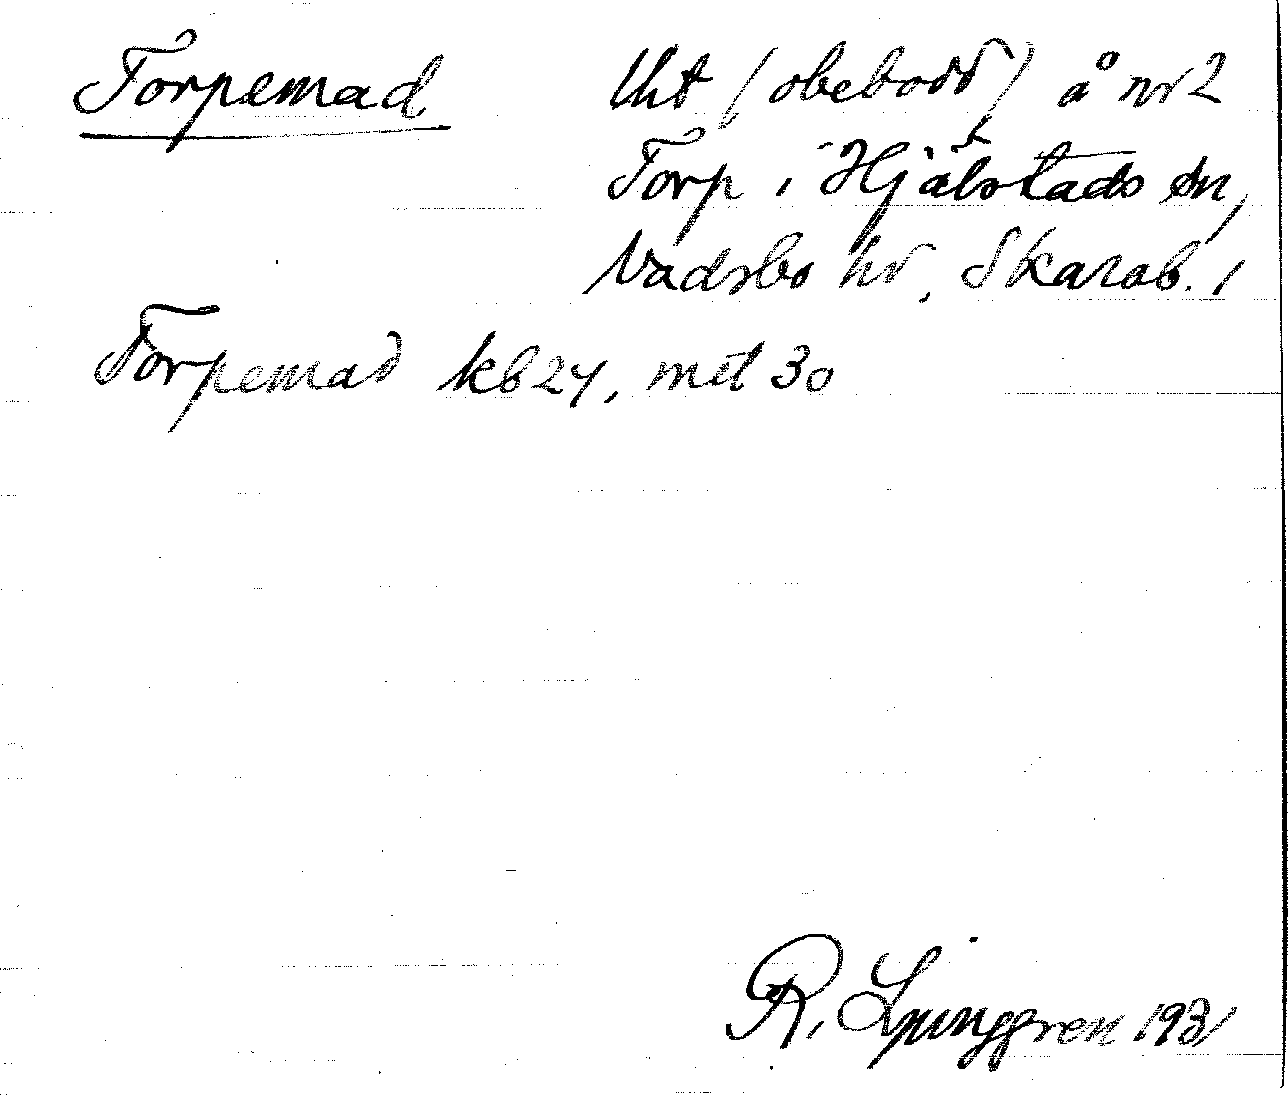 Torpemad Uht (obebodd) å nr 2
Torp i Hjälstads sn,
Vadsbo hd, Skarab. l
Torpemad kb 24, mtl 30
R. Ljunggren 1931